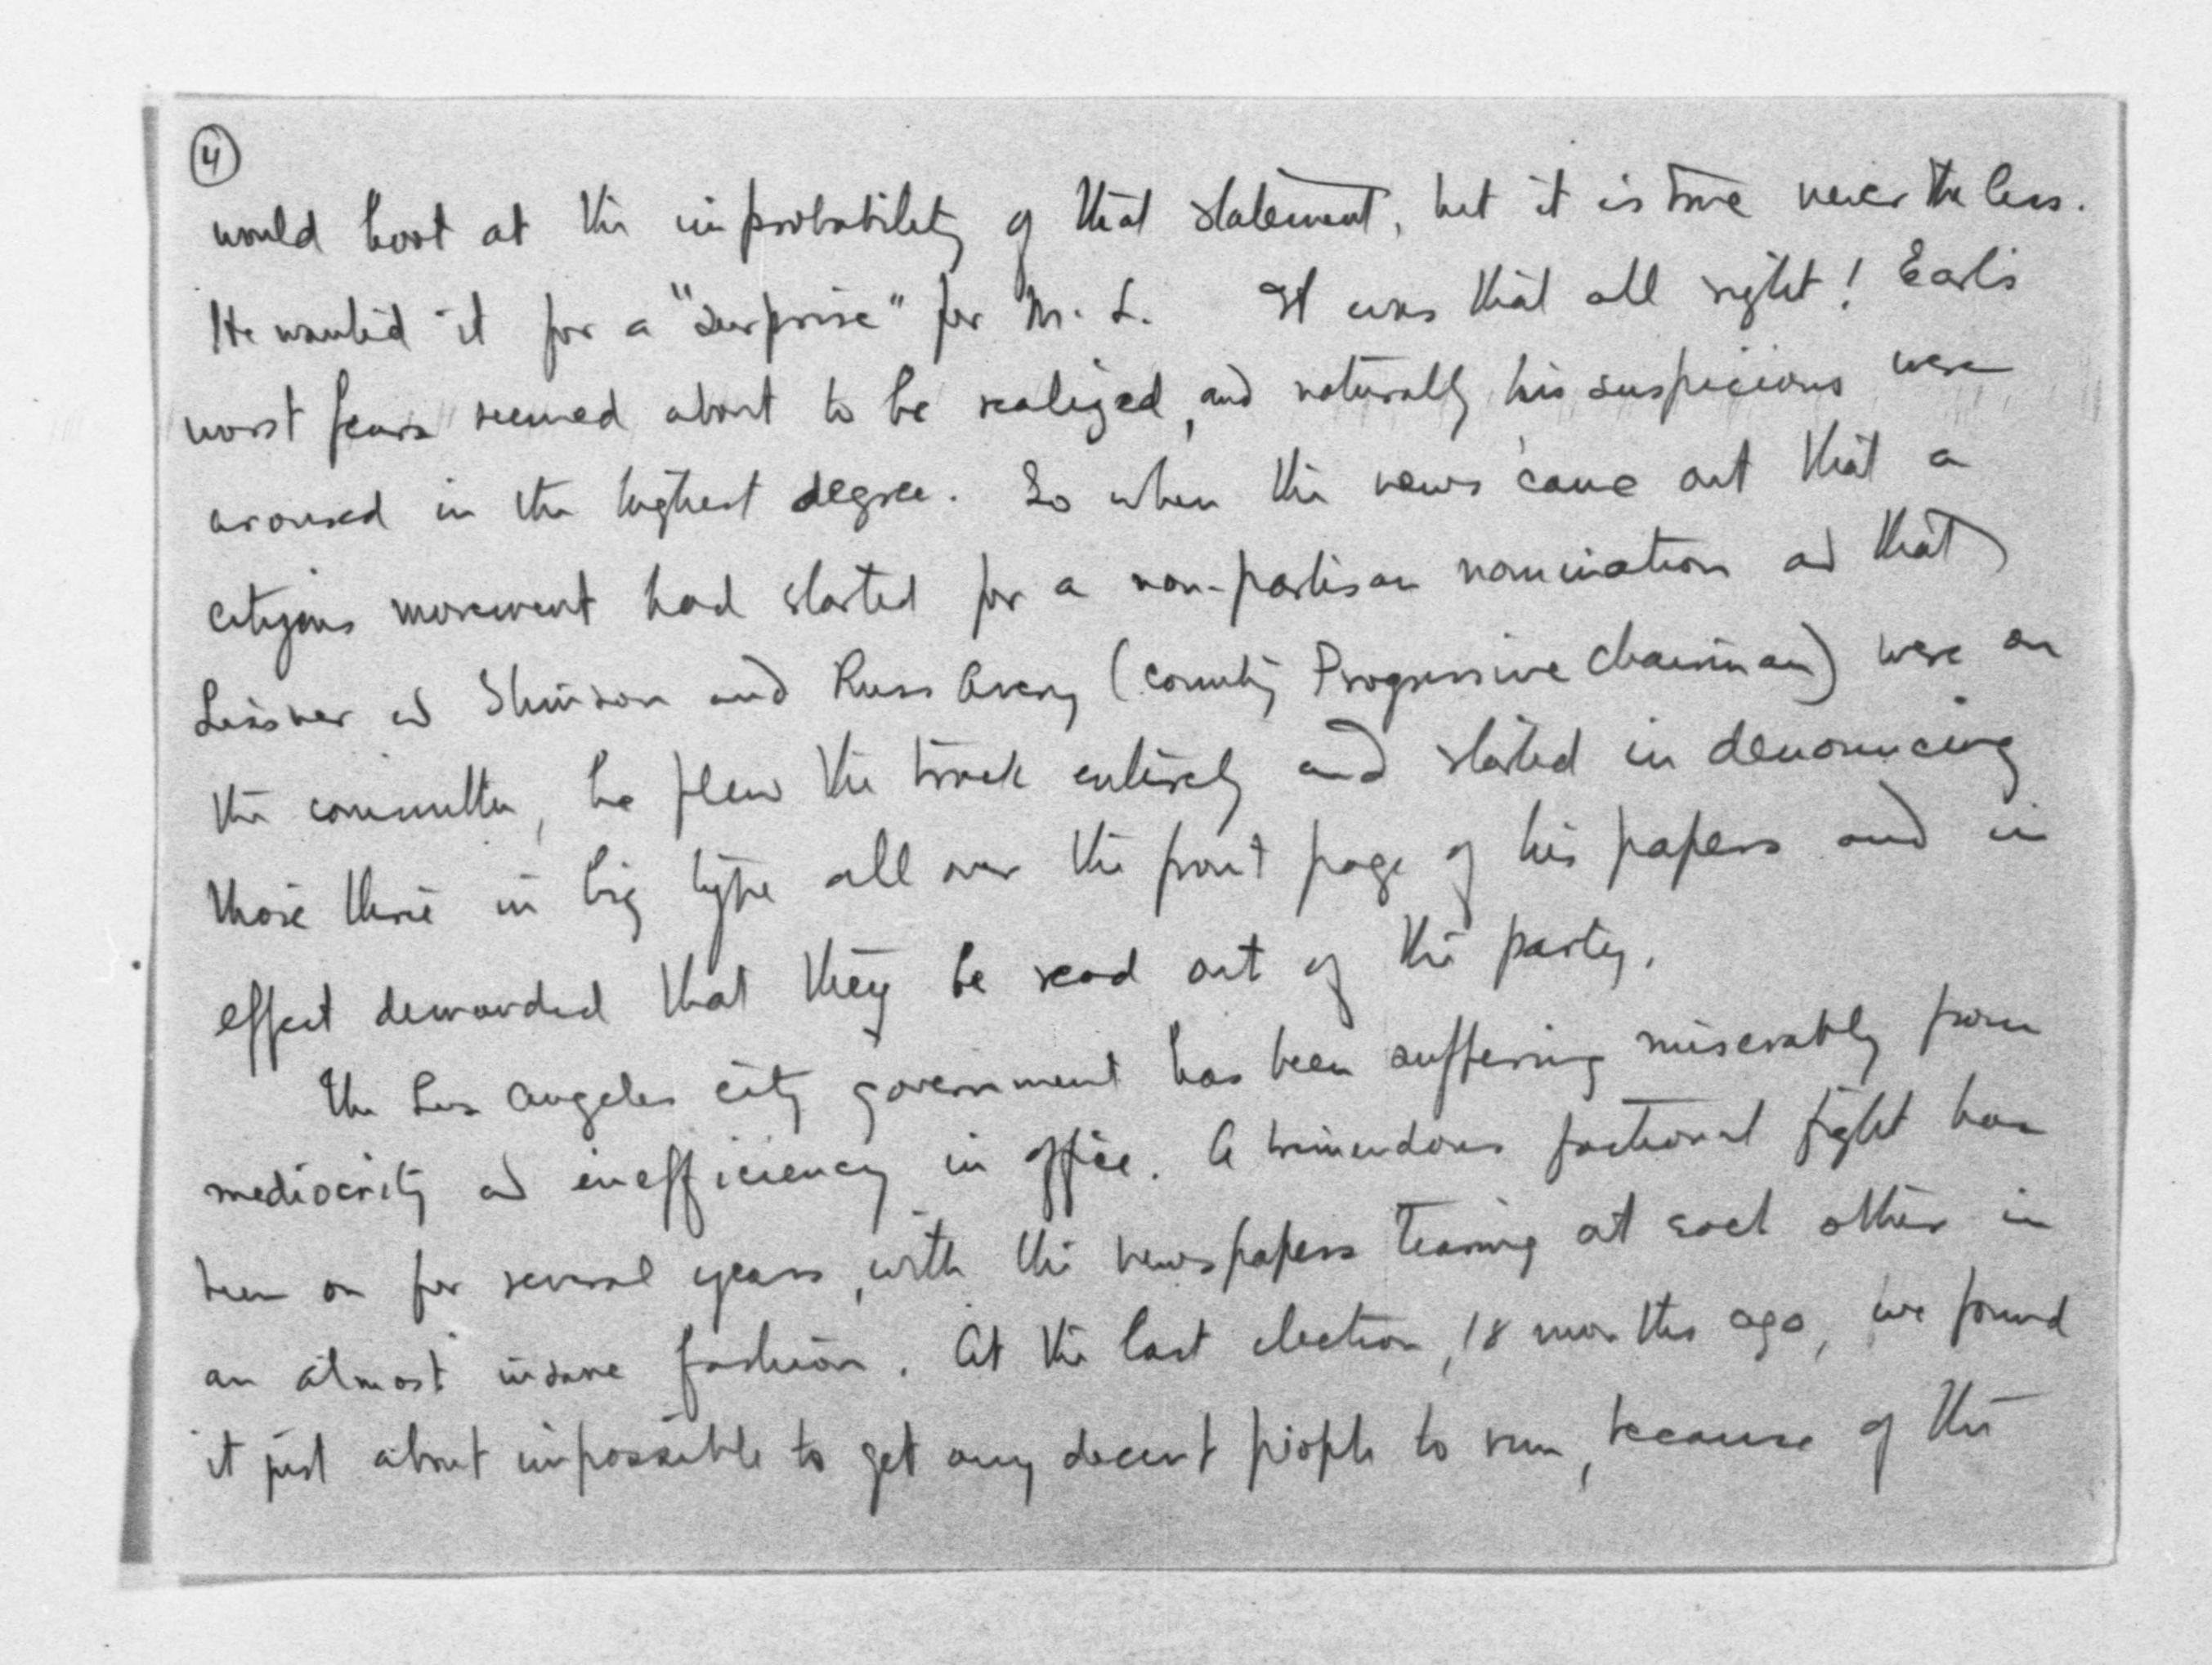 4
would hoot at the improbability of that statement, but it is true never the less.
He wanted it for a "surprise" for M. L. It was that all right! Earl's
worst fears seemed about to be realized, and naturally his suspicions were
aroused in the highest degree. So when the news came out that a
citizens movement had started for a non-partisan nomination and that
Lissner and Stimson and Russ Avery (county Progressive chairman) were on
the committee, he flew the track entirely and started in denouncing
those three in big type all over the front page of his papers and in
effect demanded that they be read out of the party.
The Los Angeles city government has been suffering miserably from
mediocrity and inefficiency in office. A tremendous factional fight has
been on for several years, with the newspapers tearing at each other in
an almost insane fashion. At the last election, 18 months ago, we found
it just about impossible to get any decent people to run, because of the